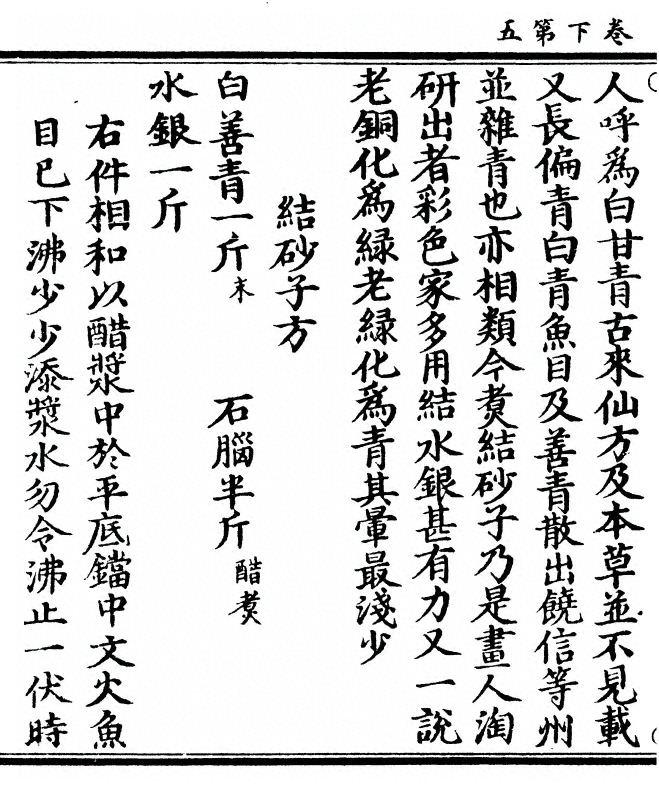 卷下第五
人呼爲白甘青古來仙方及本草並不見載
又長偏青白青魚目及善青散出饒信等州
並雜青也亦相類今煑結砂子乃是畫人淘
研出者彩色家多用結水銀甚有力又一說
老銅化爲緑老緑化爲青其暈最淺少
結砂子方
白善青一斤末 石腦半斤醋煑
水銀一斤
右件相和以醋漿中於平底鐺中文火魚
目已下沸少少添漿水勿令沸止一伏時